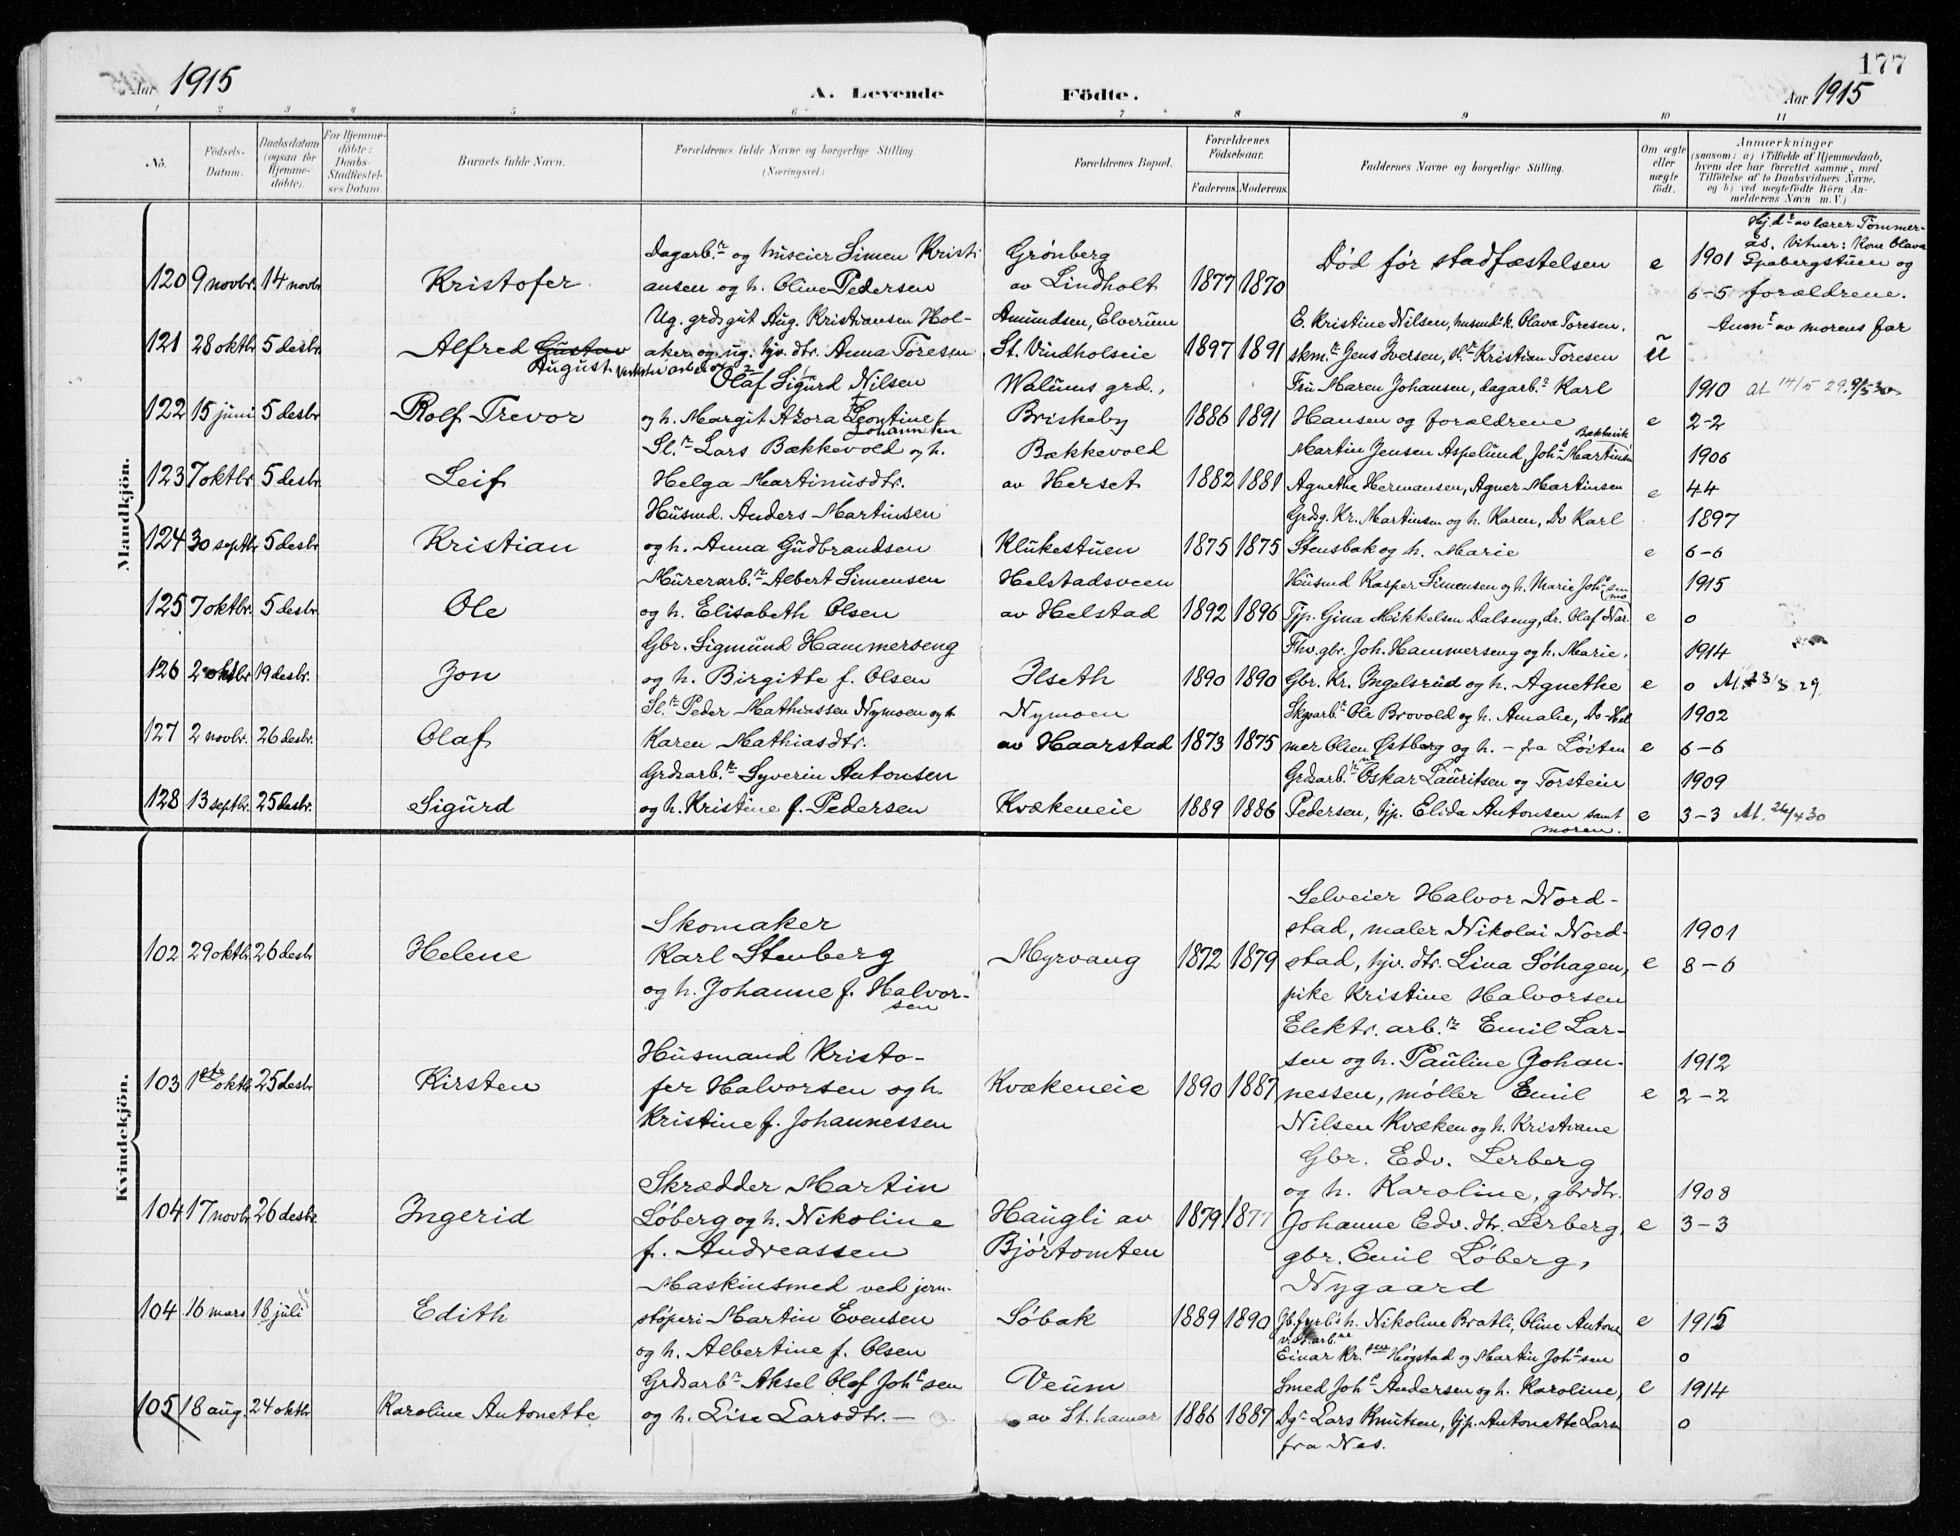 177
Aar 1915
A. Levende
Födte.
Aar 1915
1 2 3 4 5 6 7 8 9 10 11
No.
Födsels-Datum.
Daabsdatum (ogsaa for Hjemme-döbte).
For Hjemme-döbte: Daabs-Stadfæstel-ses Datum.
Barnets fulde Navn.
Forældrenes fulde Navne og borgerlige Stilling.
(Næringsvei.)
Forældrenes Bopæl.
Forældrenes Födselsaar.
Faderens. Moderens.
Faddernes Navne og borgerlige Stilling.
Om ægte eller uægte födt.
Anmærkninger
(saasom: a) i Tilfælde af Hjemmedaab,
hvem der har forrettet samme, med
Tilföielse af to Daabsvidners Navne.
og b) ved uægtefödte Börn An-
melderens Navn m. V.)
Mandkjön.
Hj.d. av lærer Tømmer-
ås. Vitner: Kone Olava
Dagarb.r og huseier Simen Kristi Grønberg 1901 Spabergstuen og
120 9 novbr. 14 novbr Kristofer ansen og h. Oline Pedersen av Lindholt 1877 1870 Død før stadfæstelsen e 6-5 forældrene.
Ug. grdsgut Aug. Kristiansen Hol- Amundsen, Elverum E. Kristine Nilsen, husmds k. Olava Toresen, Anm.t av morens far
121 28 oktbr. 5 desbr. Alfred Gustav aker og ug. hjv. dtr. Anna Toresen St. Vindholseie 1897 1891 skm.r Jens Iversen, sl.r Kristian Toresen u
August Olaf Sigurd Nilsen Walums grd., Fru Maren Johansen, dagarb.r Karl 1910 At 14/5 29. 9/5 30
122 15 juni 5 desbr. Rolf Trevor og h. Margit Azora Leontine f. Briskeby 1886 1891 Hansen og forældrene e 2-2
Johannesen
Sl.r Lars Bækkevold og h. Bækkevold Martin Jensen Aspelund, Joh.s Martinsen 1906
123 7 oktbr. 5 desbr. Leif Helga Martinusdtr. av Herset 1882 1881 Agnethe Hermansen, Agner Martinsen e 4-4
Husmd. Anders Martinsen Grdsg. Kr. Martinsen og h. Karen, Do Karl 1897
124 30 septbr 5 desbr. Kristian og h. Anna Gudbrandsen Klukestuen 1875 1875 Stensbak og h. Marie e 6-6
Murerarb.r Albert Simensen Helstadsveen Husmd Kasper Simensen og h. Marie Joh.s 1915
125 7 oktbr. 5 desbr. Ole og h. Elisabeth Olsen av Helstad 1892 1896 Tjp. Gina Mikkelsen Dalseng, dr. Olaf Nar- e 0
Gbr. Sigmund Hammerseng Fhv. gbr. Joh. Hammerseng og h. Marie, 1914
126 2 oktbr 19 desbr. Jon og h. Birgitte f. Olsen Ilseth 1890 1890 Gbr. Kr. Ingelsrud og h. Agnethe e 0 At. 23/8. 29.
Sl.r Peder Mathiassen Nymoen og h. Nymoen Skovarb.r Ole Brovold og h. Amalie, Do Hel- 1902
127 2 novbr. 26 desbr. Olaf Karen Mathiasdtr. av Haarstad 1873 1875 mer Olsen Østberg og h. - fra Løiten e 6-6
Grdsarb.r Syverin Antonsen Grdsarb.r Oskar Lauritsen og Torstein 1909
128 13 septbr. 25 desbr. Sigurd og h. Kristine f. Pedersen Kvækeneie 1889 1886 Pedersen, tjp. Elida Antonsen samt e 3-3 At. 26/4 30
moren.
Kvindekjön.
Selveier Halvor Nord-
Skomaker stad, maler Nikolai Nord- 1901
102 29 oktbr 26 desbr Helene Karl Stenberg Myrvang 1872 1879 stad, hjv. dtr. Lina Søhagen, e 8-6
og h. Johanne f. Halvor-sen pike Kristine Halvorsen
Elektr. arb.r Emil Lar-
Husmand Kristo- sen og h. Pauline Johan- 1912
103 1ste oktbr 25 desbr Kirsten fer Halvorsen og h. Kvækeneie 1890 1887 nessen, møller Emil e 2-2
Kristine f. Johannessen Nilsen Kvæken og h. Kristiane
Gbr. Edv. Lerberg
Skrædder Martin og h. Karoline, gbrdtr. 1908
104 17 novbr. 26 desbr. Ingerid Løberg og h. Nikoline Haugli av 1879 1877 Johanne Edv. dtr. Lerberg, e 3-3
f. Andreassen Bjørtomten gbr. Emil Løberg,
Maskinsmed ved jern- Nygaard
104 16 mars 18 juli Edith støperi Martin Evensen Søbak 1889 1890 h. Nikoline Bratli, Oline Antone e 1915
og h. Albertine f. Olsen Einar Kr.sen Høgstad og Martin Joh.sen 0
Grdsarb.r Aksel Olaf Joh.sen Veum Smed Joh.s Andersen og h. Karoline, e 1914
105 18 aug. 24 oktbr Karoline Antonette og h. Lise Larsdtr. — av St. hamar 1886 1887 Dg.r Lars Knutsen, tjp. Antonette Larsn 0
fra Nes.